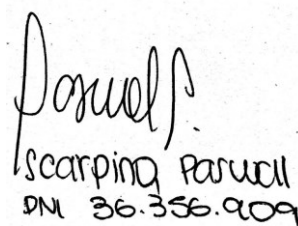 Pascual S.
Scarpina Pascual
DNI 36.356.909